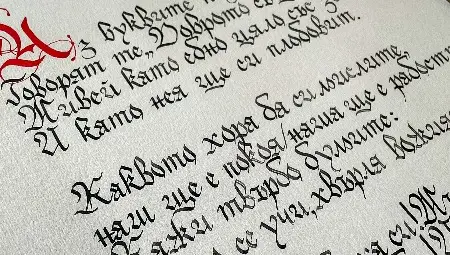 Аз буквите
Говорят те „Доброто
Живей като едно цяло със
И като нея ще си плодовит.
Каквото хора да си мислите,
наш ще е покоя/наша ще е
Кажи твърдо думите:
се учи, хвърля
си!